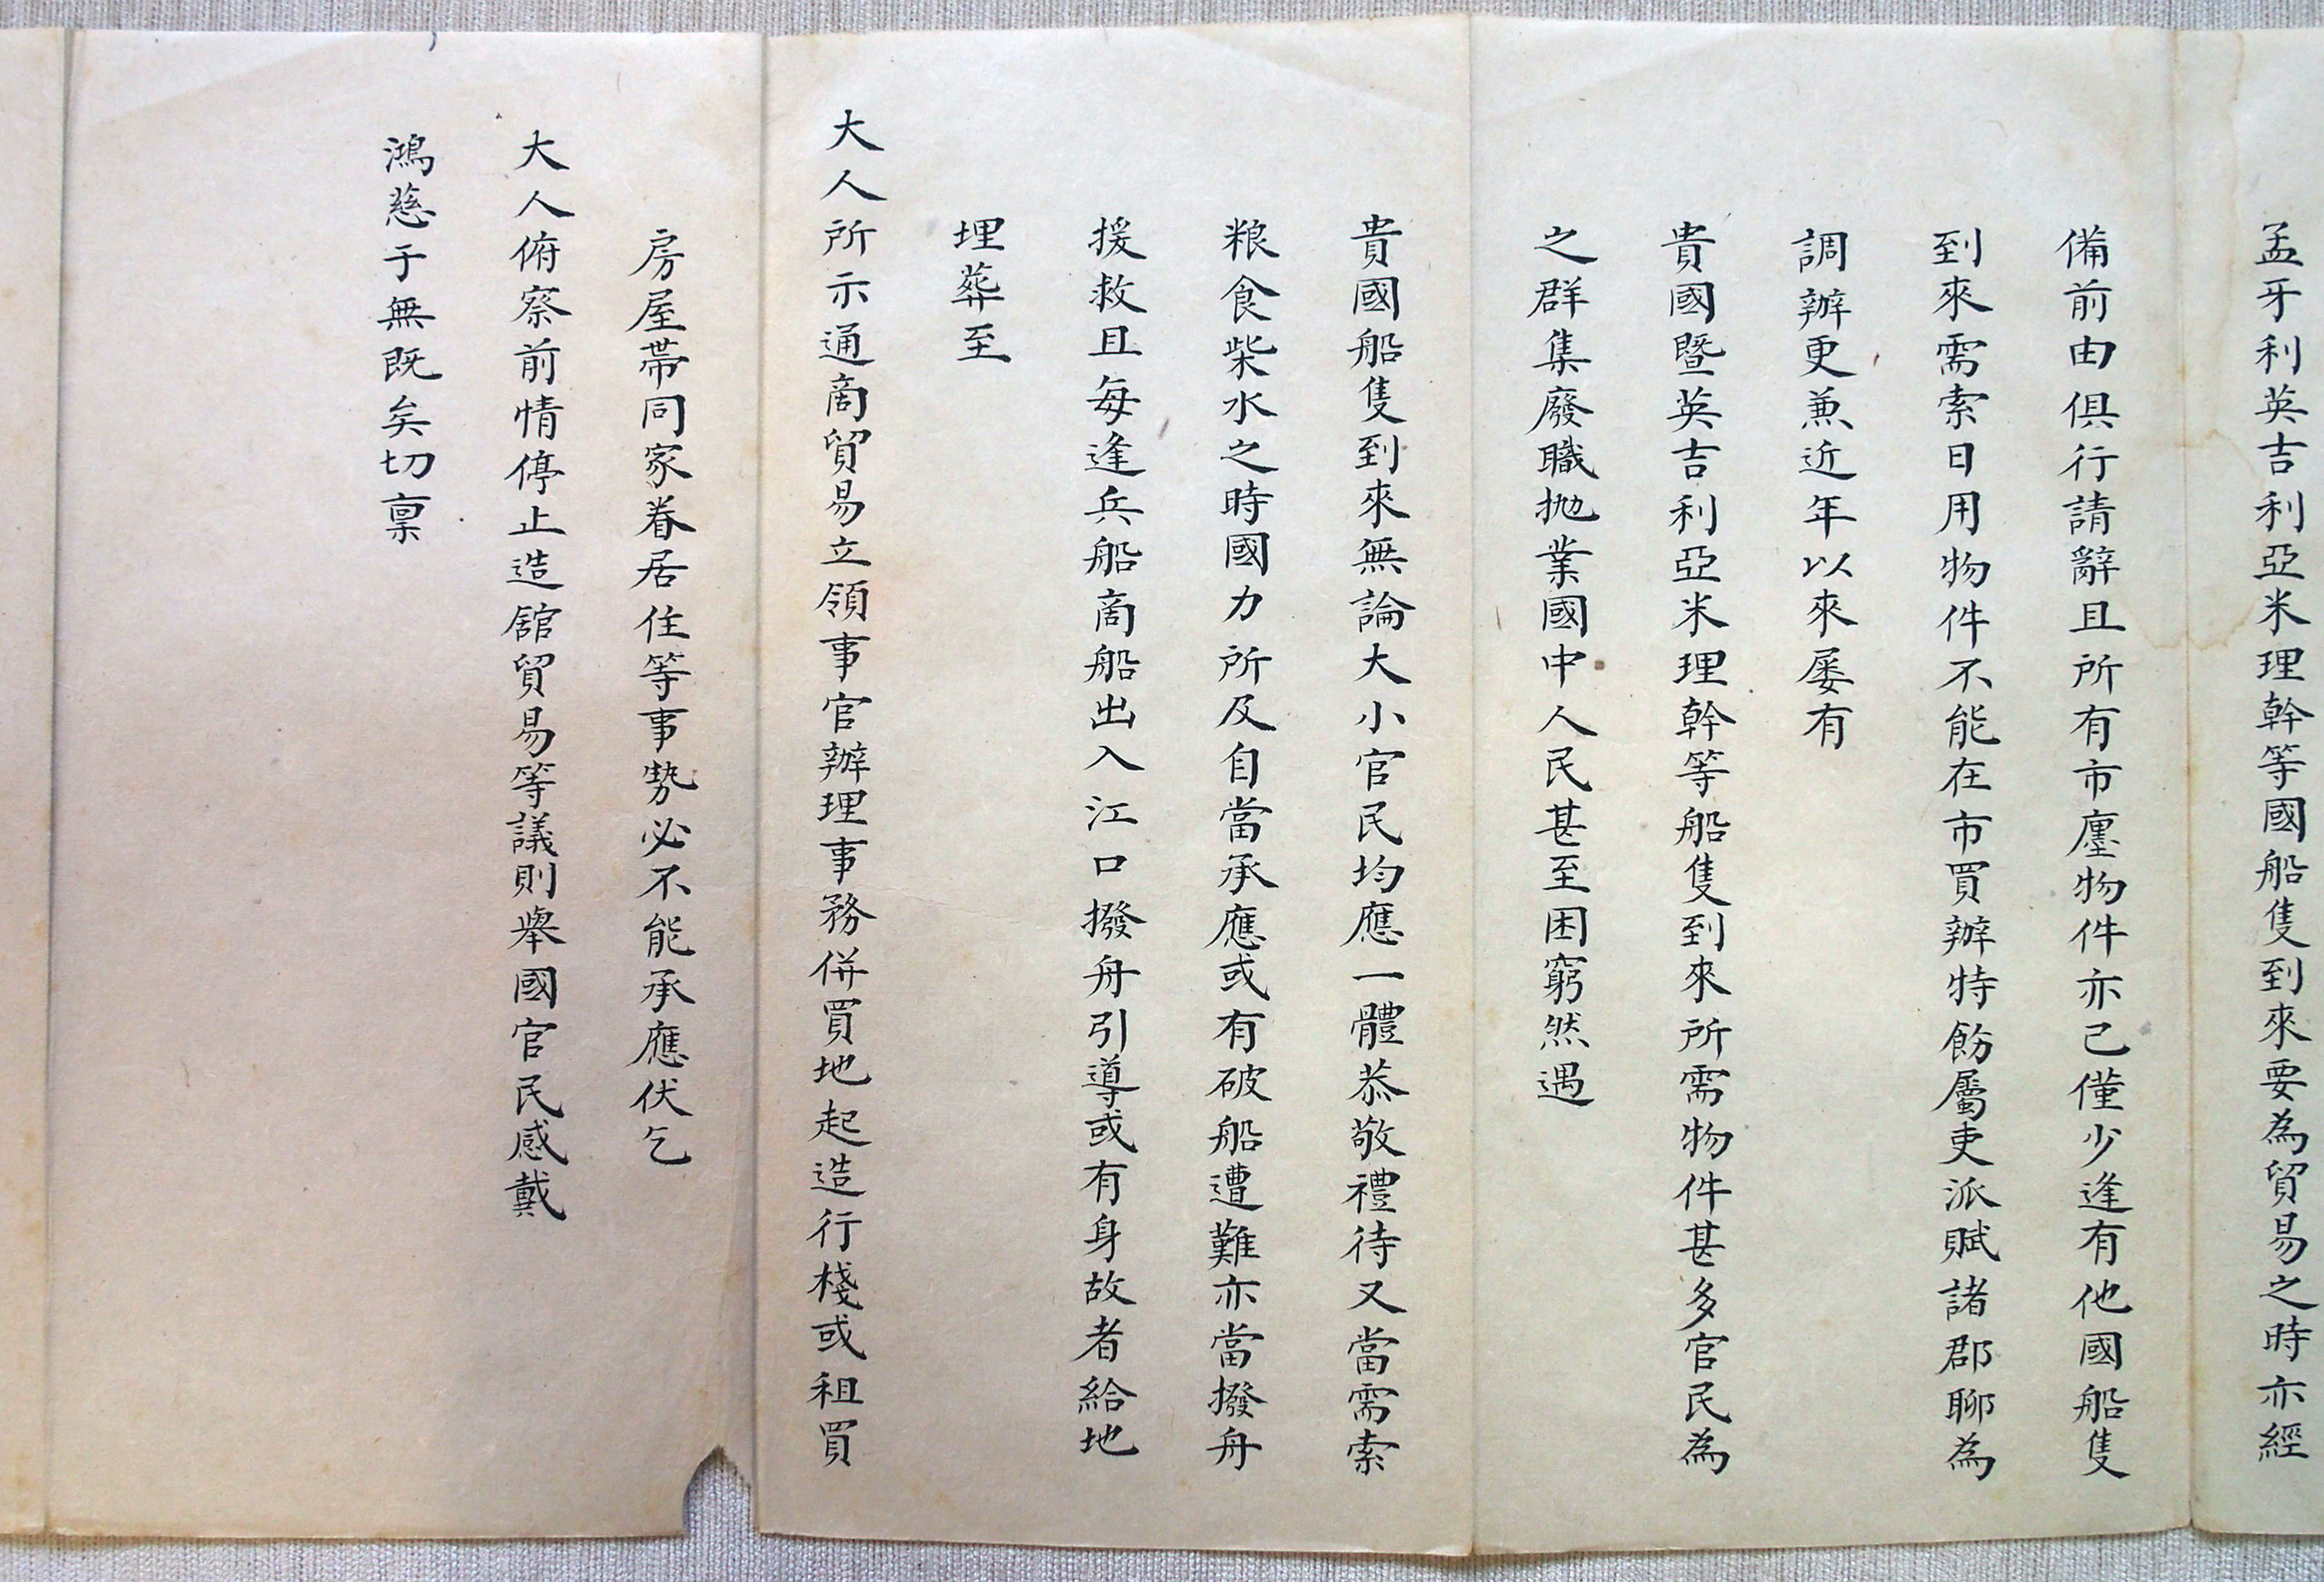 孟牙利英吉利亞米理幹等國船隻到來要為貿易之時亦經
備前由俱行請辭且所有市廛物件亦已僅少逢有他國船隻
到來需索日用物件不能在市買辦特飭屬吏派賦諸郡聊為
調辦更兼近年以來屡有
貴國暨英吉利亞米理幹等船隻到來所需物件甚多官民為
之群集廢職拋業國中人民甚至困窮然遇
貴國船隻到來無論大小官民均應一體恭敬禮待又當需索
粮食柴水之時國力所及自當承應或有破船遭難亦當撥舟
援救且每逢兵船商船出入江口撥舟引導或有身故者給地
埋葬至
大人所示通商貿易立領事官辦理事務併買地起造行棧或租買
房屋帶同家眷居住等事勢必不能承應伏乞
大人俯察前情停止造舘貿易等議則舉國官民感戴
鴻慈于無既矣切稟